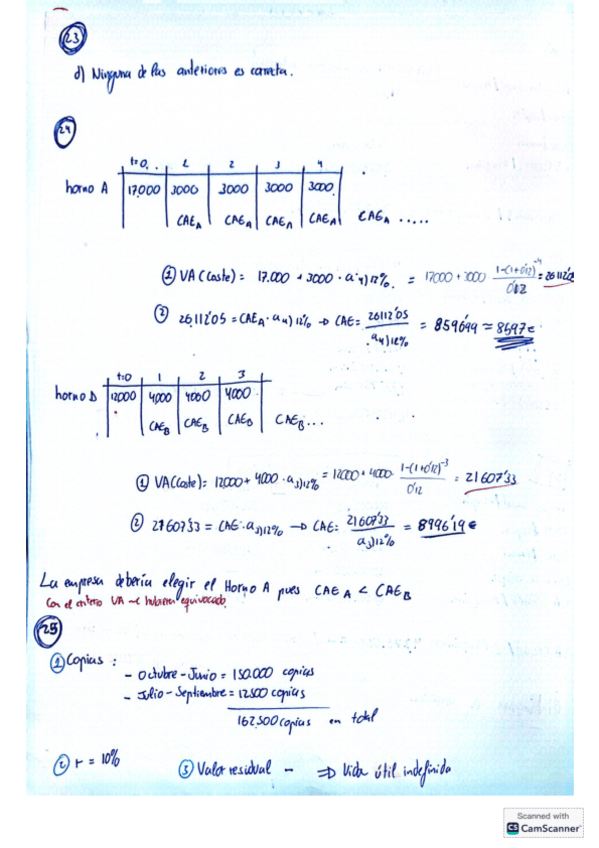 23
d) Ninguna de las anteriores es correcta.
24
t=0 1 2 3 4
horno A 17.000 3000 3000 3000 3000
CAE_A CAE_A CAE_A CAE_A CAE_A .....
① VA (Coste) = 17.000 + 3000 · a 4)12% = 17000 + 3000 · 1-(1+0'12)^-4 / 0'12 = 26112'05
② 26.112'05 = CAE_A · a 4)12% → CAE = 26112'05 / a 4)12% = 8596'99 ≃ 8597€
t=0 1 2 3
horno B 12000 4000 4000 4000
CAE_B CAE_B CAE_B CAE_B ...
① VA (Coste) = 12000 + 4000 · a 3)12% = 12000 + 4000 · 1-(1+0'12)^-3 / 0'12 = 21607'33
② 21607'33 = CAE · a 3)12% → CAE = 21607'33 / a 3)12% = 8996'19€
La empresa debería elegir el Horno A pues CAE_A < CAE_B
Con el criterio VA hubiera equivocado.
25
① Copias :
- Octubre - Junio = 150.000 copias
- Julio - Septiembre = 12500 copias
162.500 copias en total
② r = 10% ③ Valor residual - ⇒ Vida útil indefinida
Scanned with
CS CamScanner